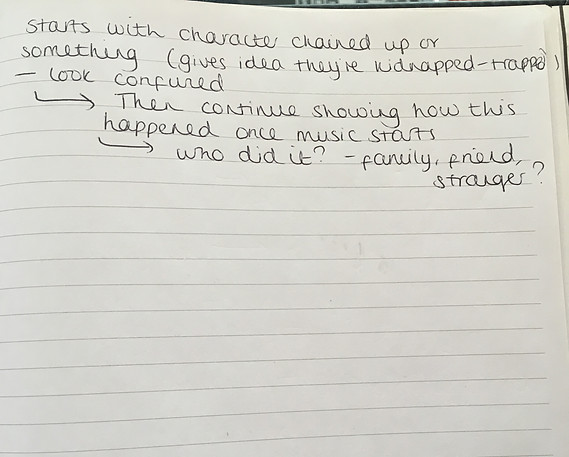 starts with character chained up or
something (gives idea they're kidnapped-trapped)
- look confused
→ Then continue showing how this
happened once music starts
→ who did it? - family, friend,
stranger?